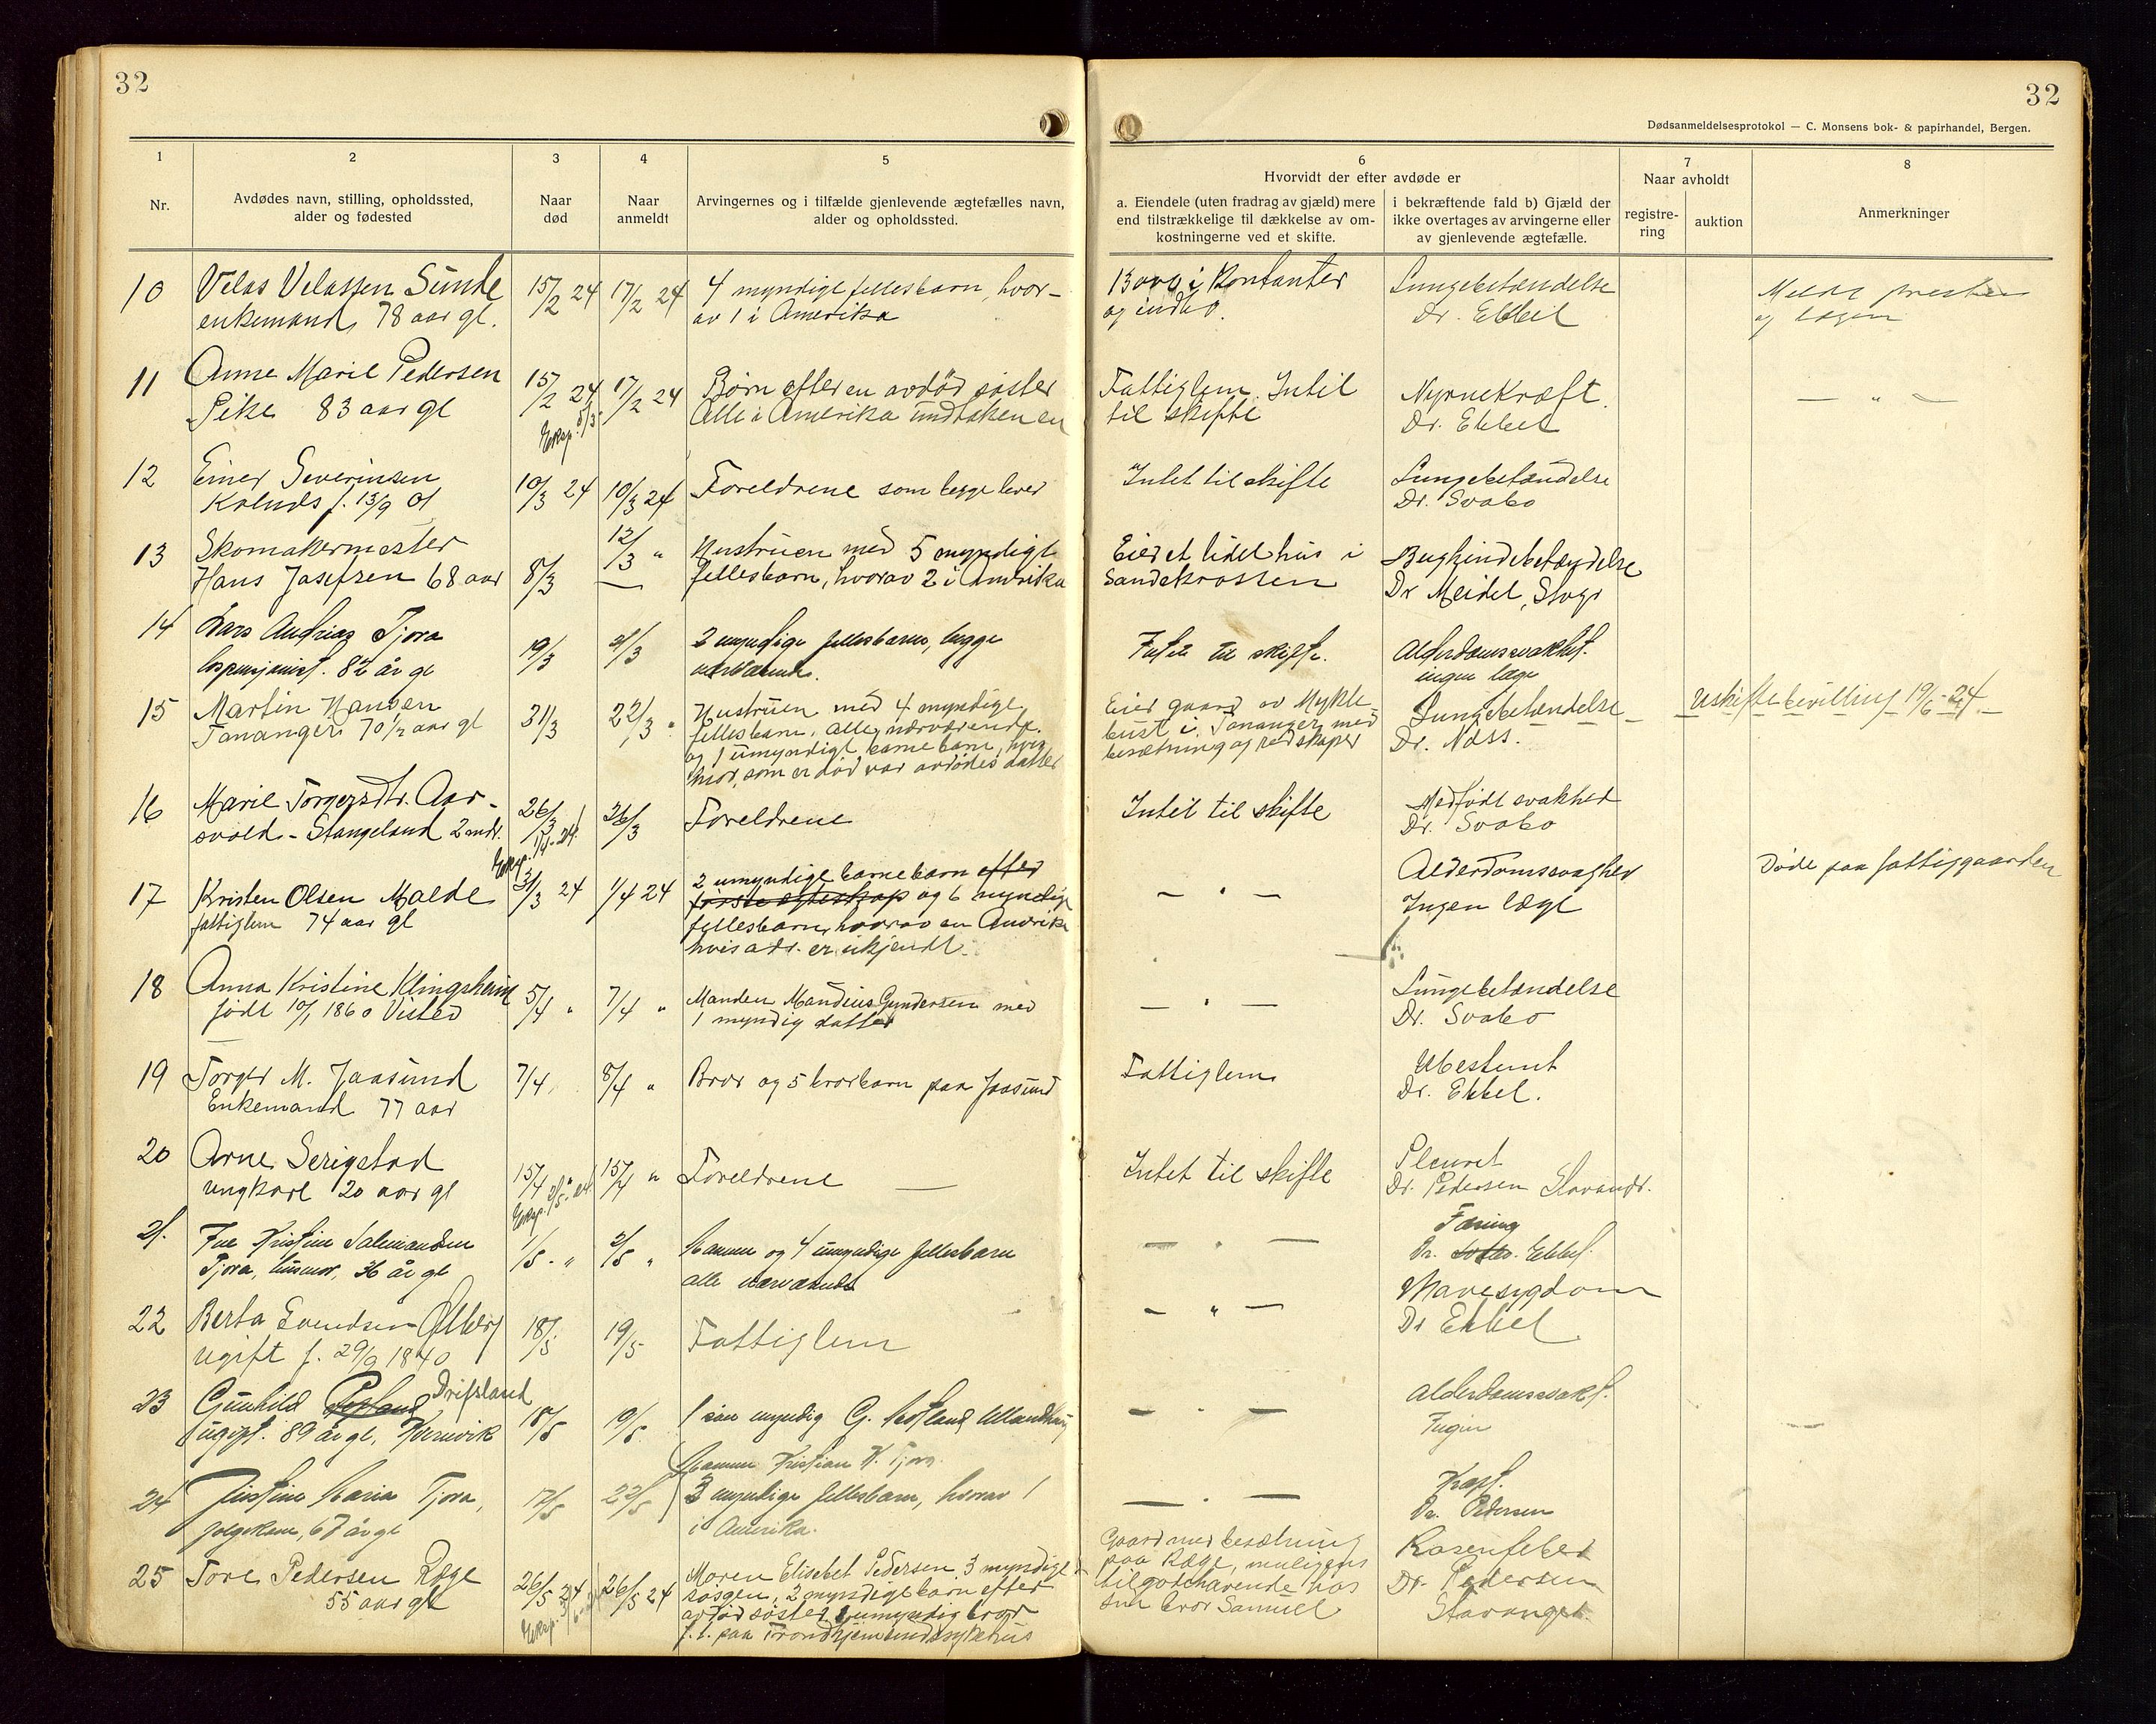 32
32
Dødsanmeldelsesprotokol — C. Monsens bok- & papirhandel, Bergen.
1
Nr.
2
Avdødes navn, stilling, opholdssted,
alder og fødested
3
Naar
død
4
Naar
anmeldt
5
Arvingernes og i tilfælde gjenlevende ægtefælles navn,
alder og opholdssted.
6
Hvorvidt der efter avdøde er
a. Eiendele (uten fradrag av gjæld) mere
end tilstrækkelige til dækkelse av om-
kostningerne ved et skifte.
i bekræftende fald b) Gjæld der
ikke overtages av arvingerne eller
av gjenlevende ægtefælle.
7
Naar avholdt
registre-
ring
auktion
8
Anmerkninger
10 Velas Velassen Sunde 15/2 24 17/2 24 4 myndige fellesbarn, hvor-
enkemand, 78 aar gl. av 1 i Amerika
i Kontanter
og indbo.
Lungebetændelse
Dr. Ebbel
Meldt presten
og lægen
11 Anne Marie Pedersen 15/2 24 17/2 24 Børn efter en avdød søster
Pike 83 aar gl Alle i Amerika undtaken en
Eksp.
Fattiglem. Intet
til skifte
Nyrnekræft.
Dr. Ebbel
— " —
12 Einer Severinsen 10/3 24 10/3 24 Foreldrene som begge lever
f. 13/9 01
Intet til skifte
Lungebetændelse
Dr. Svabo
13 Skomakermester 12/3 " Hustruen med 5 myndige
Hans Josefsen 68 aar 8/3 — fellesbarn, hvorav 2 i Amerika
Eier et lidet hus i
Sandekrossen
Bughindebetændelse
Dr Meidel, Stvgr
14 Lars Andreas Tjora 19/3 21/3 2 myndige fellesbarn, begge
82 år gl nærværende.
Intet til skifte.
Alderdomssvakhet.
ingen læge
15 Martin Hansen 31/3 22/3 " Hustruen med 4 myndige
Tananger 70 1/2 aar gl fellesbarn, alle nærværende.
og 1 umyndigt barnebarn, hvis
mor, som er død var avdødes datter
Eier gaard av Mykle-
bust i Tananger med
besætning og redskaper
Lungebetændelse
Dr. Næss.
Uskiftebevilling 19/6-24
16 Marie Torgersdtr. Aar- 26/3 26/3 Foreldrene
svold - Stangeland 2 mdr.
Eksp. 1/4-24
Intet til skifte
Medfødt svakhed
Dr. Svabo
17 Kristen Olsen Malde 31/3 24 1/4 24 2 umyndige barnebarn efter
fattiglem 74 aar gl første egteskap og 6 myndige
fellesbarn, hvorav en Amerika
hvis adr. er ukjendt.
— " —
Alderdomssvaghed
Ingen læge
Døde paa fattiggaarden
18 Anna Kristine Klingsheim 5/4 " 7/4 " Manden Mandius Gundersen med
født 10/1 1860 Visted 1 myndig datter
— " —
Lungebetændelse
Dr. Svabo
19 Torger M. Jaasund 7/4 8/4 " Bror og 5 brorbarn paa Jaasund
Enkemand 77 aar
Fattiglem
Ubestemt
Dr. Ebbel.
20 Arne Serigstad 15/4 " 15/4 " Foreldrene —
Ungkarl 20 aar gl
Eksp. 2/5-24
Intet til skifte
Pleurit
Dr. Pedersen Stavangr.
21. Fru Kristine Salemonsen 1/5 - " 2/5 " Mannen og 4 umyndige fellesbarn
Tjora, husmor, 36 år gl alle nærværende
— " —
Tæring
Dr. Ebbel.
22 Berta Svendsen Ølberg 18/5 19/5 Fattiglem
Ugift f. 29/9 1840
— " —
Mavesygdom
Dr Ebbel
23 Gunhild Drifsland 18/5 19/5 1 søn myndig G. Hofland Ullandhaug
ugift. 89 år gl, Kvernvik
— " —
Alderdomssvakh.
Ingen
24 Justine Maria Tjora, 17/5 22/5 Mannen Kristian K. Tjora.
67 år gl 3 myndige fellesbarn, hvorav 1
i Amerika.
— " —
Kræft.
Dr. Pedersen
25 Tore Pedersen Ræge 26/5 24 26/5 24 Moren Elisabet Pedersen, 3 myndige
55 aar gl søsken, 2 myndige barn efter
avdød søster, 1 umyndig bror
f.t. paa Trondhjems sindssykehus
Eksp.
Gaard med besætning
paa Ræge, muligens
tilgodehavende hos
sin bror Samuel
Rosenfeber
Dr. Pedersen
Stavanger.